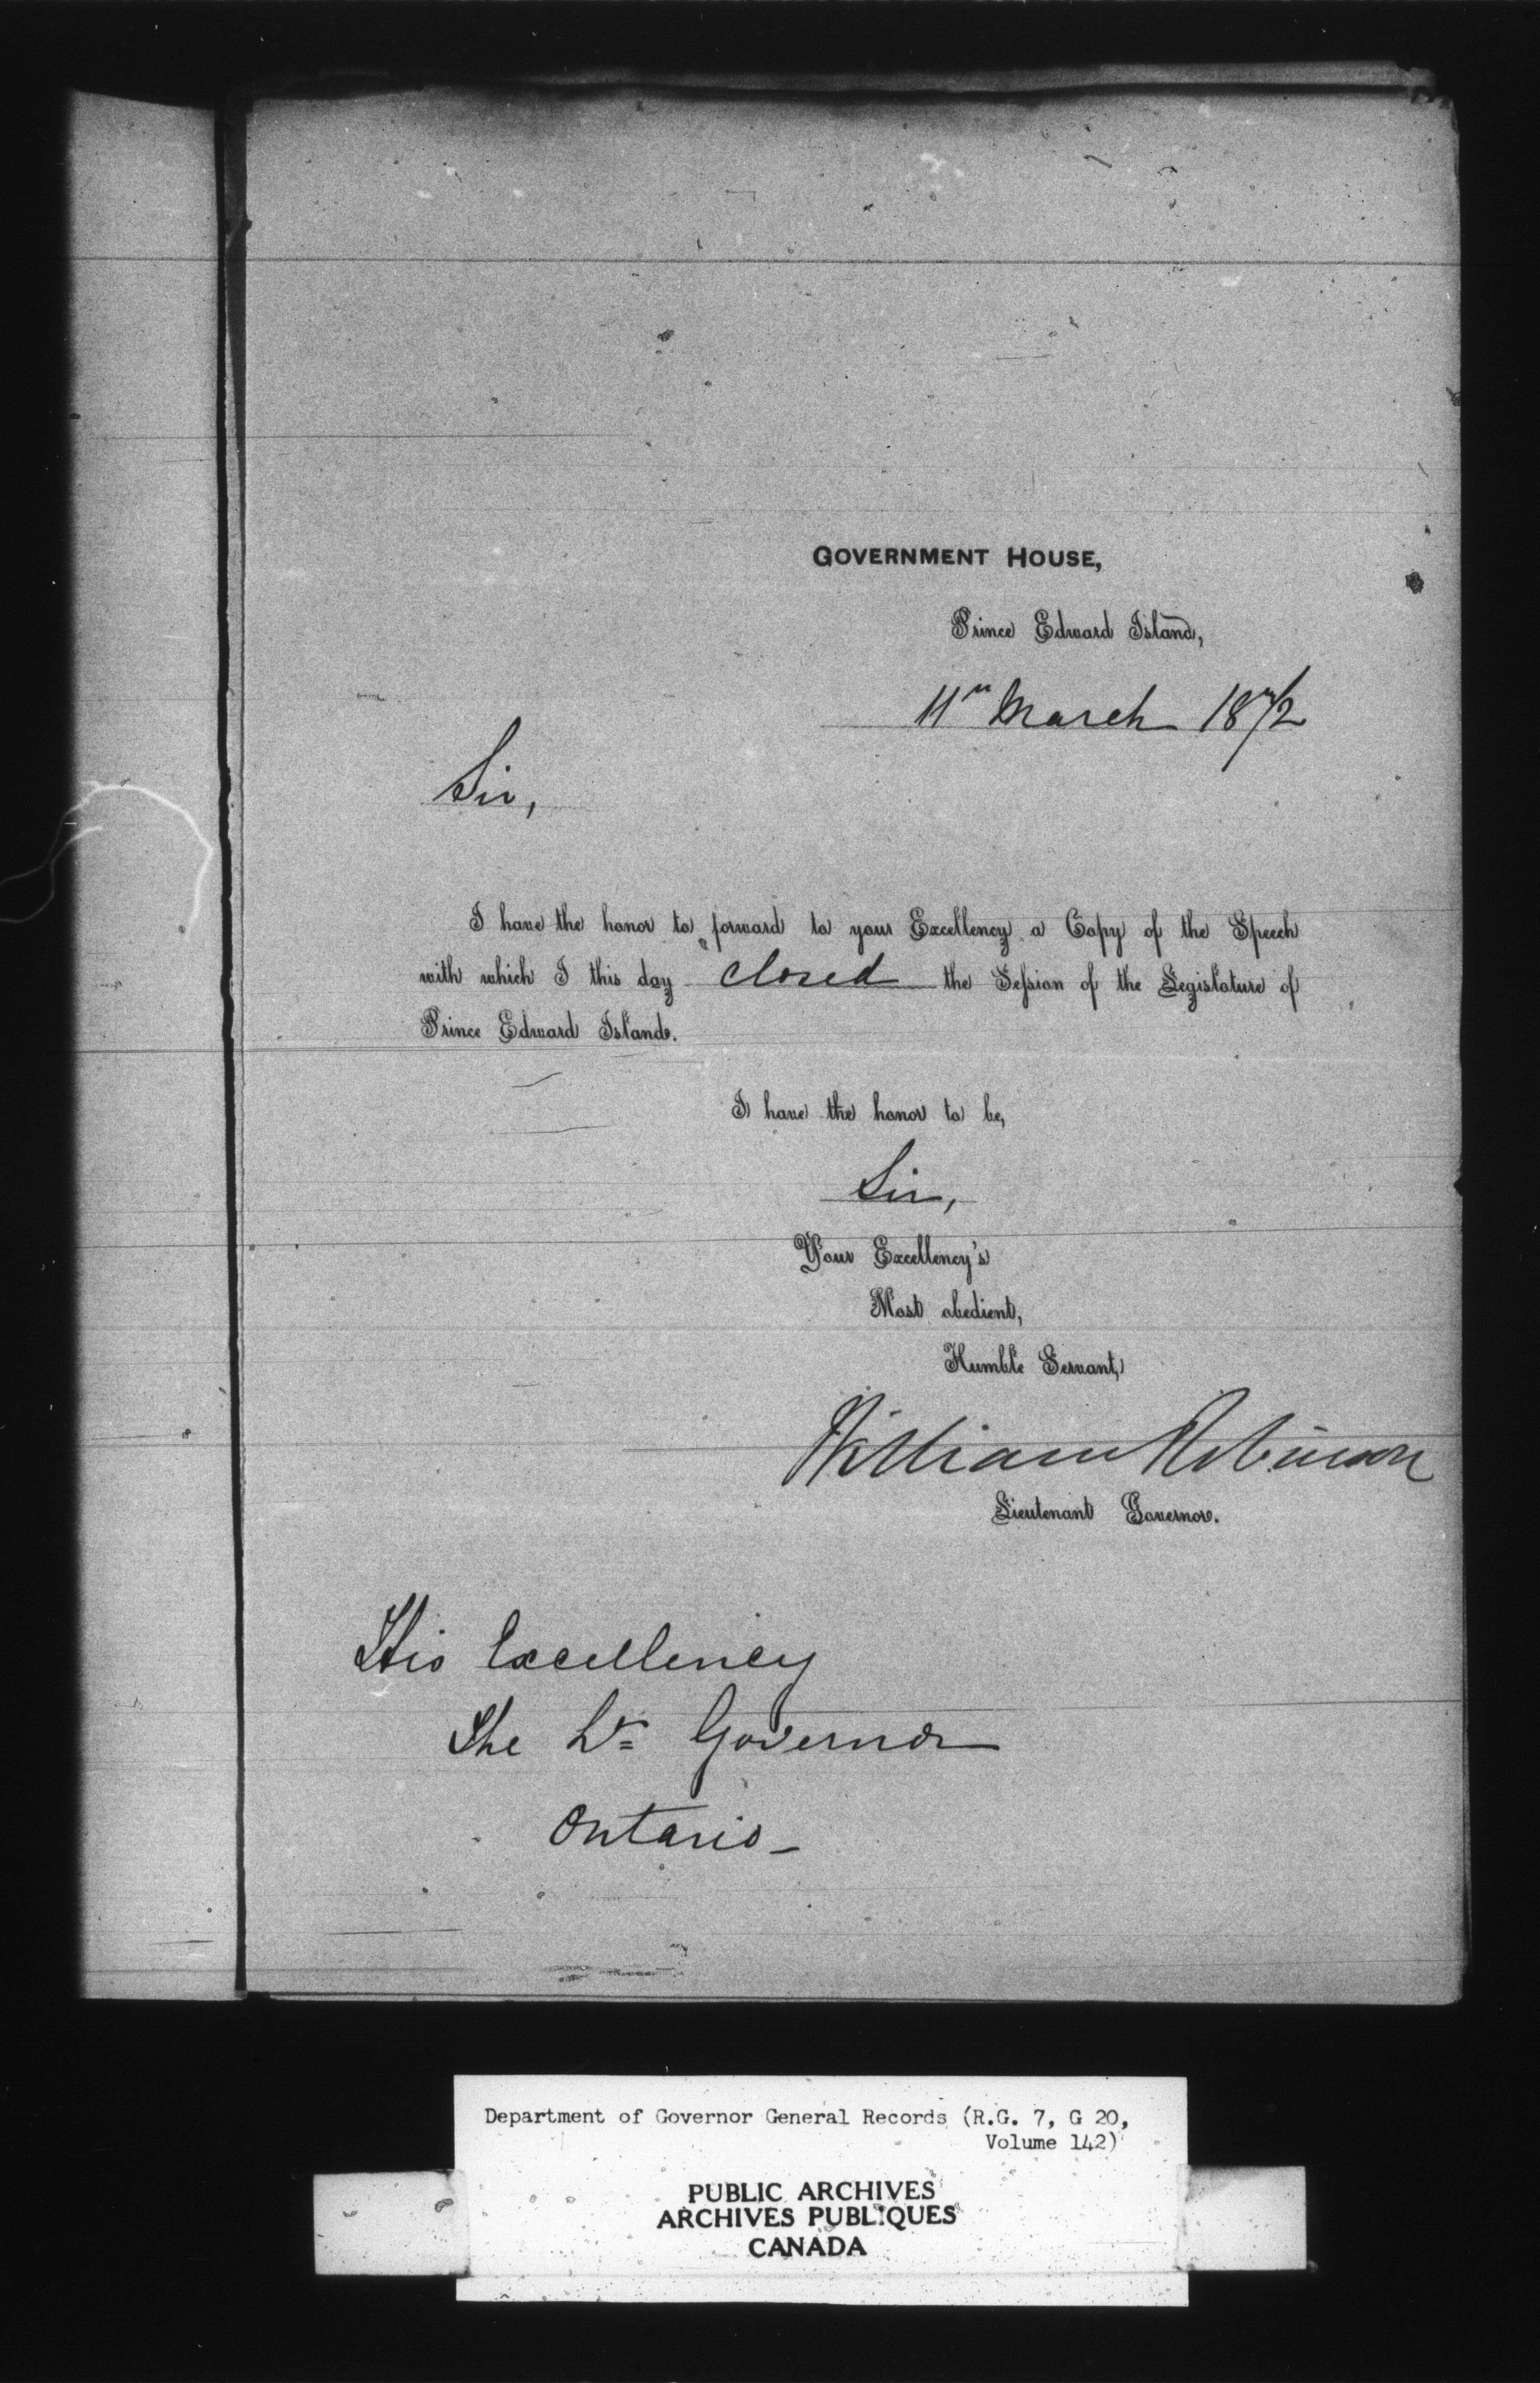 GOVERNMENT HOUSE,
Prince Edward Island,
11th March 1872
Sir,
I have the honor to forward to your Excellency a Copy of the Speech
with which I this day closed the Session of the Legislature of
Prince Edward Island.
I have the honor to be,
Sir,
Your Excellency's
Most obedient,
Humble Servant,
William Robinson
Lieutenant Governor.
His Excellency
The Lt Governor
Ontario
Department of Governor General Records (R.G. 7, G 20,
Volume 142)
PUBLIC ARCHIVES
ARCHIVES PUBLIQUES
CANADA